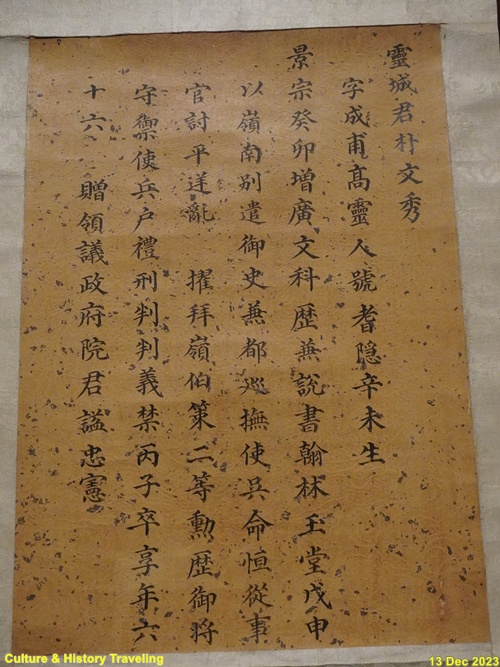 靈城君朴文秀
字成甫髙靈人號耆隱辛未生
景宗癸卯增廣文科歷兼說書翰林玉堂戊申
以嶺南別遣御史兼都巡撫使吳命恒從事
官討平逆亂 擢拜嶺伯策二等勳歷御將
守禦使兵戶禮刑判判義禁丙子卒享年六
十六 贈領議政府院君謚忠憲
Culture & History Traveling
13 Dec 2023